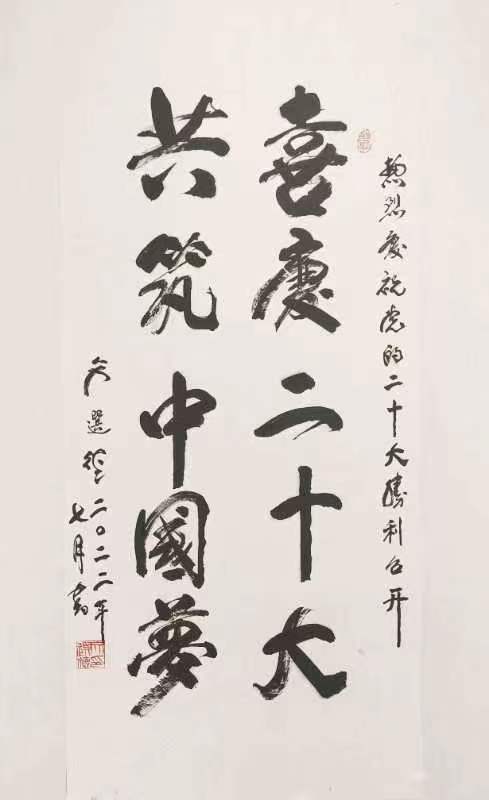 熱烈慶祝党的二十大勝利召开
喜慶二十大
共筑中國夢
選德二〇二二年
七月